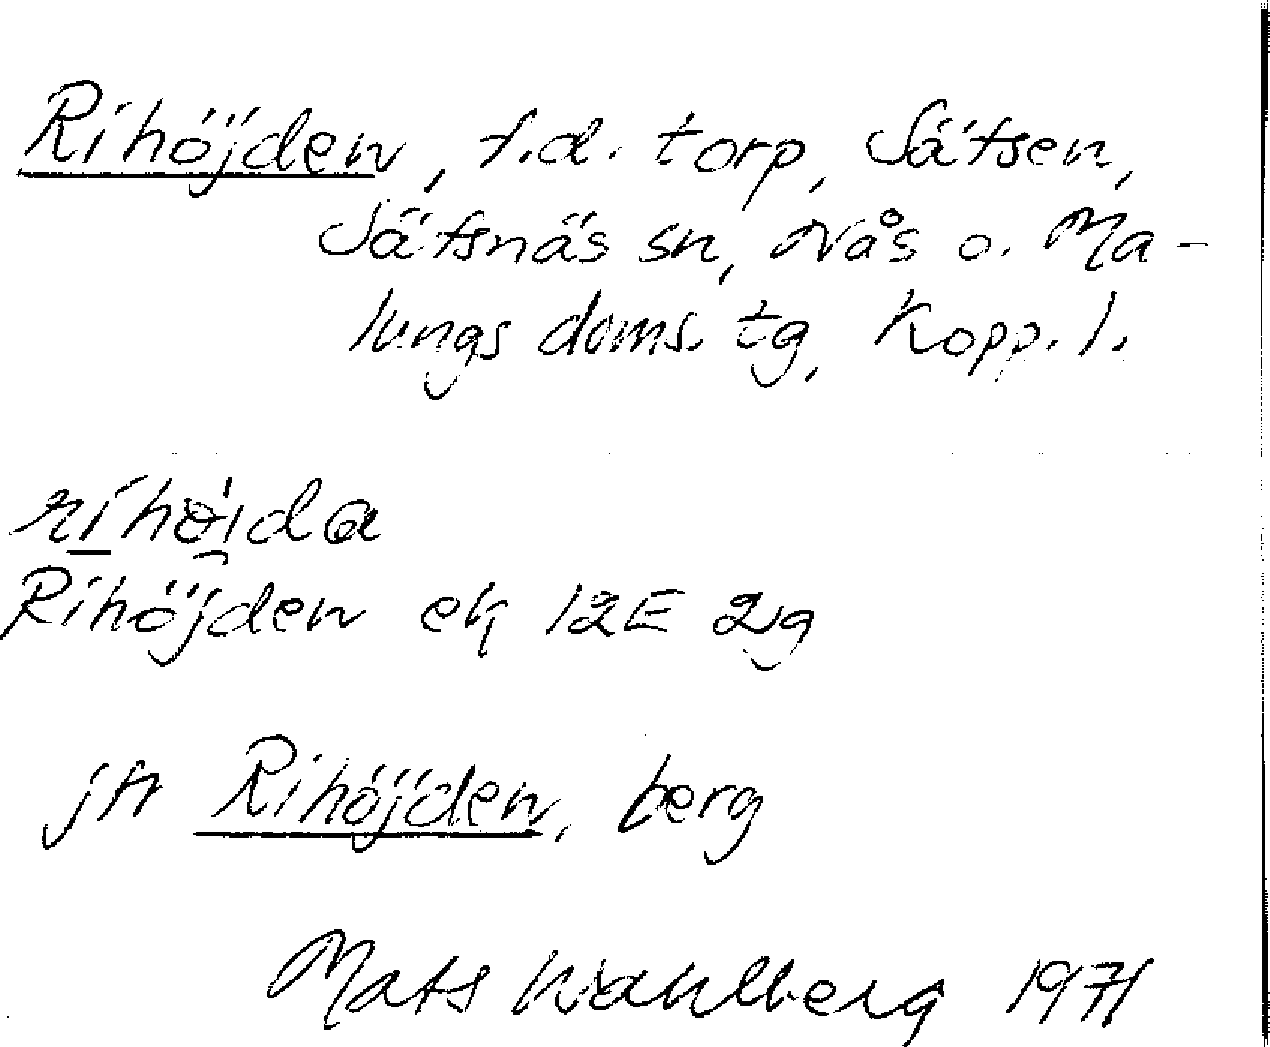 Rihöjden, f.d. torp, Sätsen,
Jätsnäs sn, Nås o. Ma-
lungs doms. tg, Kopp. l.
Rihöjden ek 12E 2g
jfr Rihöjden, berg
Mats Wahlberg 1971